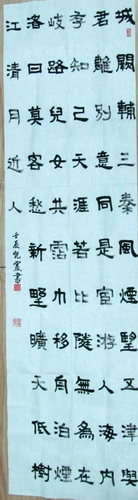 城闕輔三秦風煙望五津與
君離別意同是宦遊人海内
存知己天涯若比隣無為在
岐路兒女共霑巾移舟泊煙
渚日莫客愁新野曠天低樹
江清月近人
壬辰書